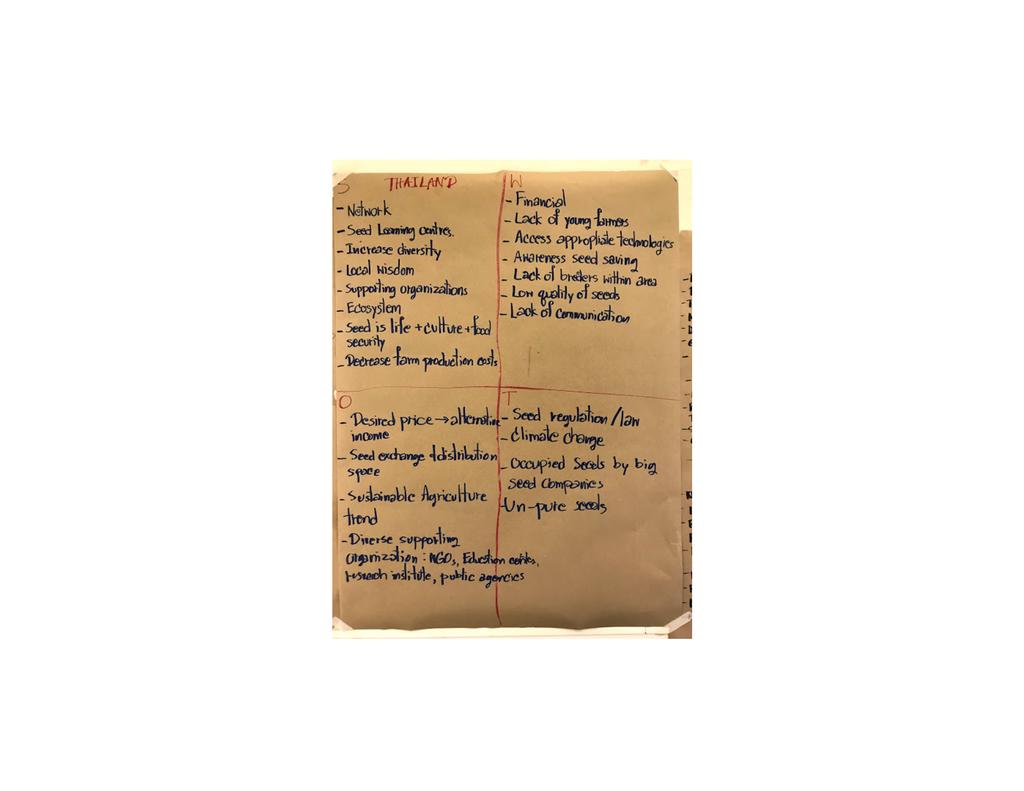 S THAILAND
- Network
- Seed Learning centres.
- Increase diversity
- Local wisdom
- Supporting organizations
- Ecosystem
- Seed is life + culture + food
security
- Decrease farm production costs
W
- Financial
- Lack of young farmers
- Access appropriate technologies
- Awareness seed saving
- Lack of breeders within area
- Low quality of seeds
- Lack of communication
O
- Desired price → alternative
income
- Seed exchange + distribution
space
- Sustainable Agriculture
trend
- Diverse supporting
organization : NGOs, Education centres,
research institute, public agencies
T
- Seed regulation / law
- Climate change
- Occupied Seeds by big
seed companies
- Un-pure seeds